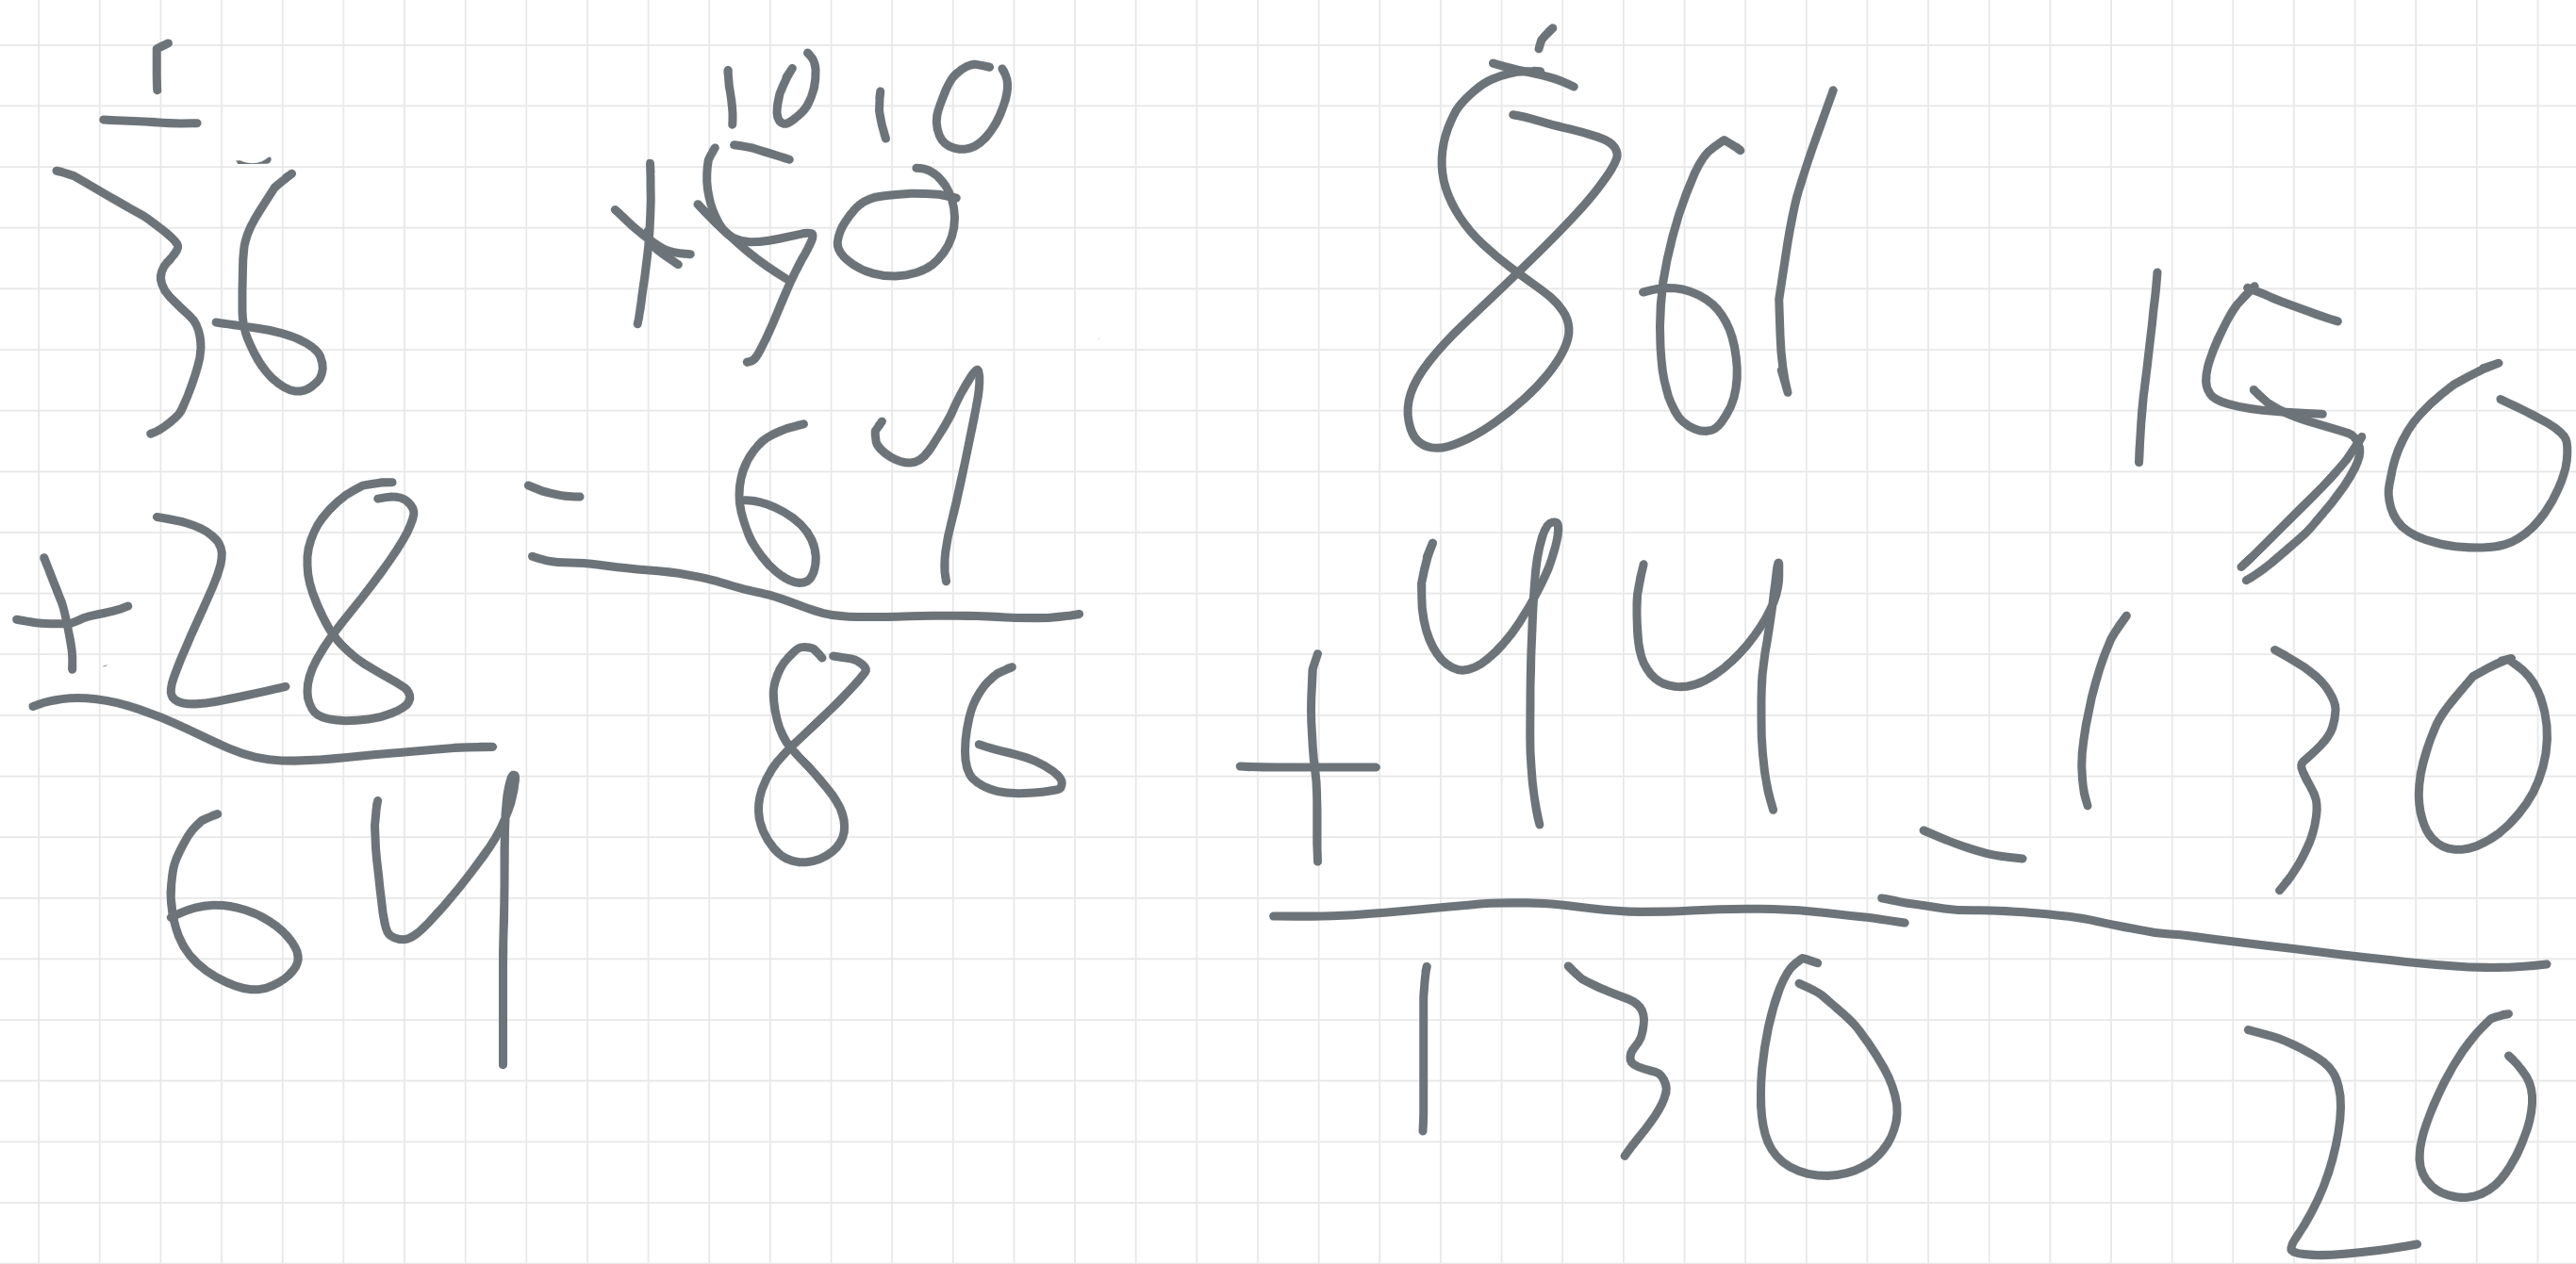 1
36
+ 28
64
10 10
150
- 64
86
1
86
+ 44
130
150
- 130
20